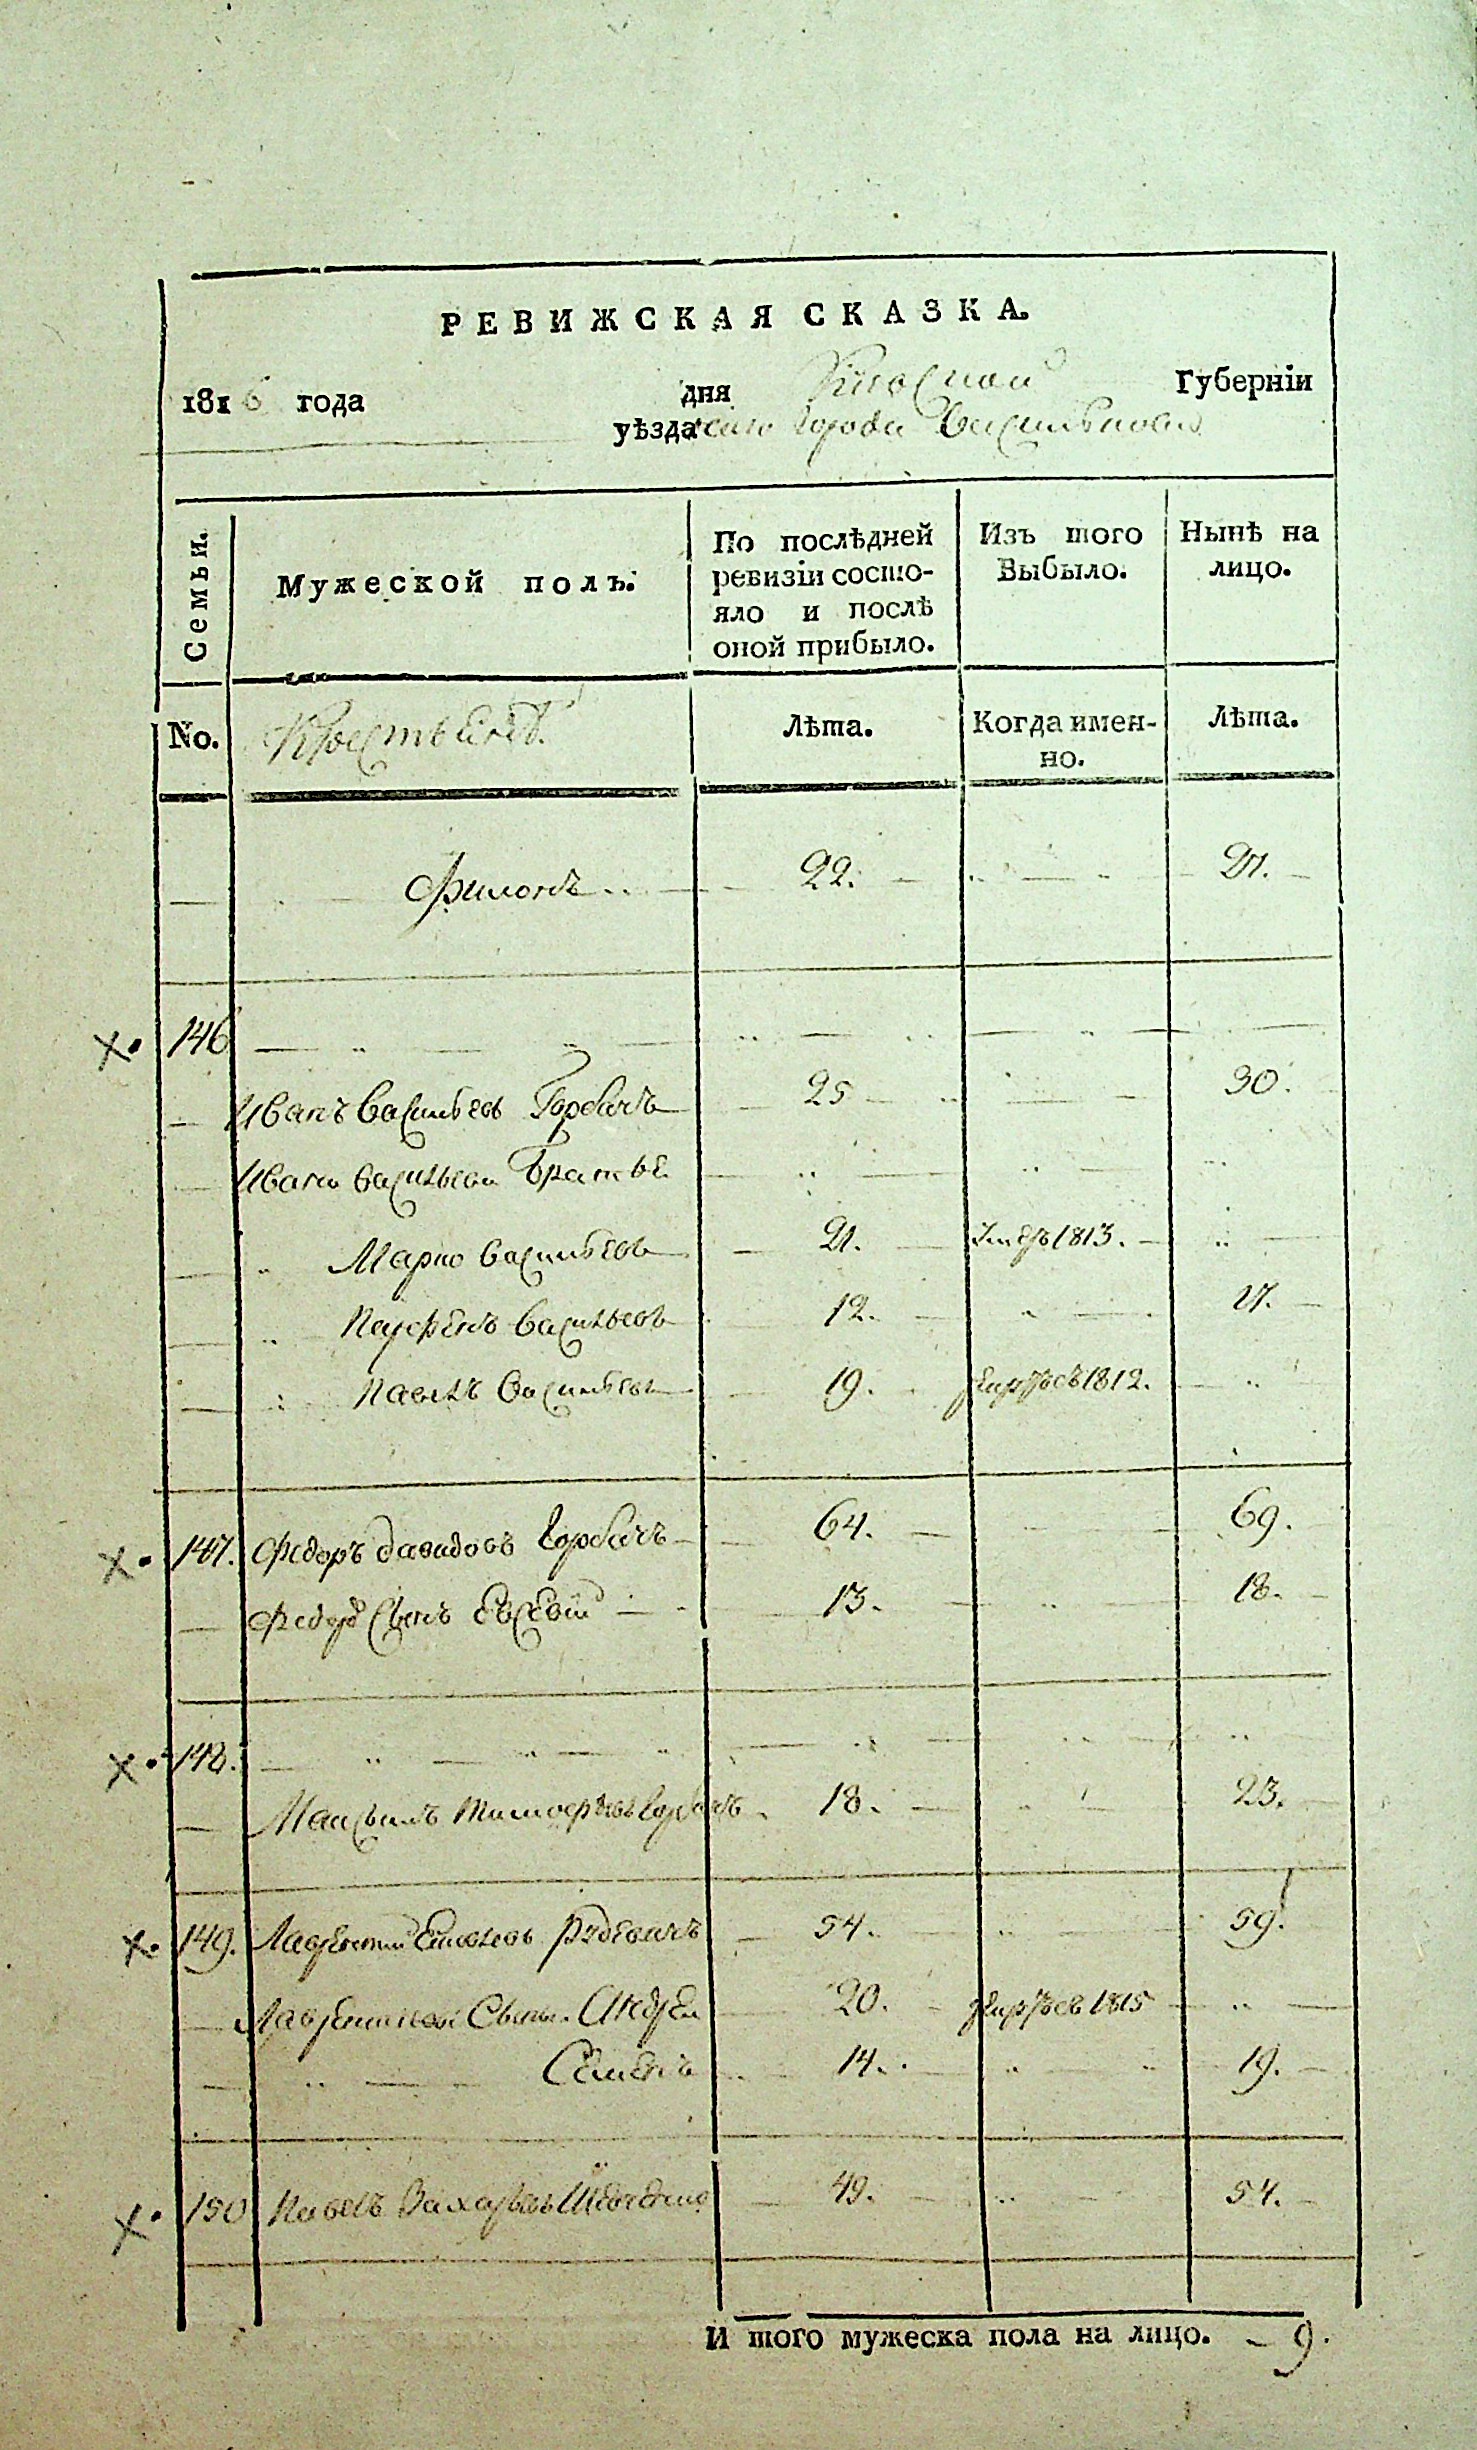 РЕВИЖСКАЯ СКАЗКА.
1816 года дня Кіевской Губерніи
уѣзда города Василькова
Семьи. Мужеской полъ. По послѣдней ревизіи состояло и послѣ оной прибыло. Изъ того Выбыло. Нынѣ на лицо.
No. Крестьянъ. Лѣта. Когда именно. Лѣта.
Филонъ 22. 27.
146
Иванъ Васильевъ Горбачъ 25 30.
Ивана Васильева Братья
Марко Васильевъ 21. Умеръ 1813.
Парфенъ Васильевъ 12. 17.
Павелъ Васильевъ 19. 1812.
147. Федоръ Давидовъ Горбачъ 64. 69.
Федора Сынъ Евсевій 13. 18.
148.
Максимъ Тимофѣевъ Горбачъ 18. 23.
149. Лаврентій 54. 59.
Лаврентія Сыны. Андрей 20. 1815
Семенъ 14. 19.
150 Павелъ Захарьевъ Шевченко 49. 54.
И того мужеска пола на лицо. 9.